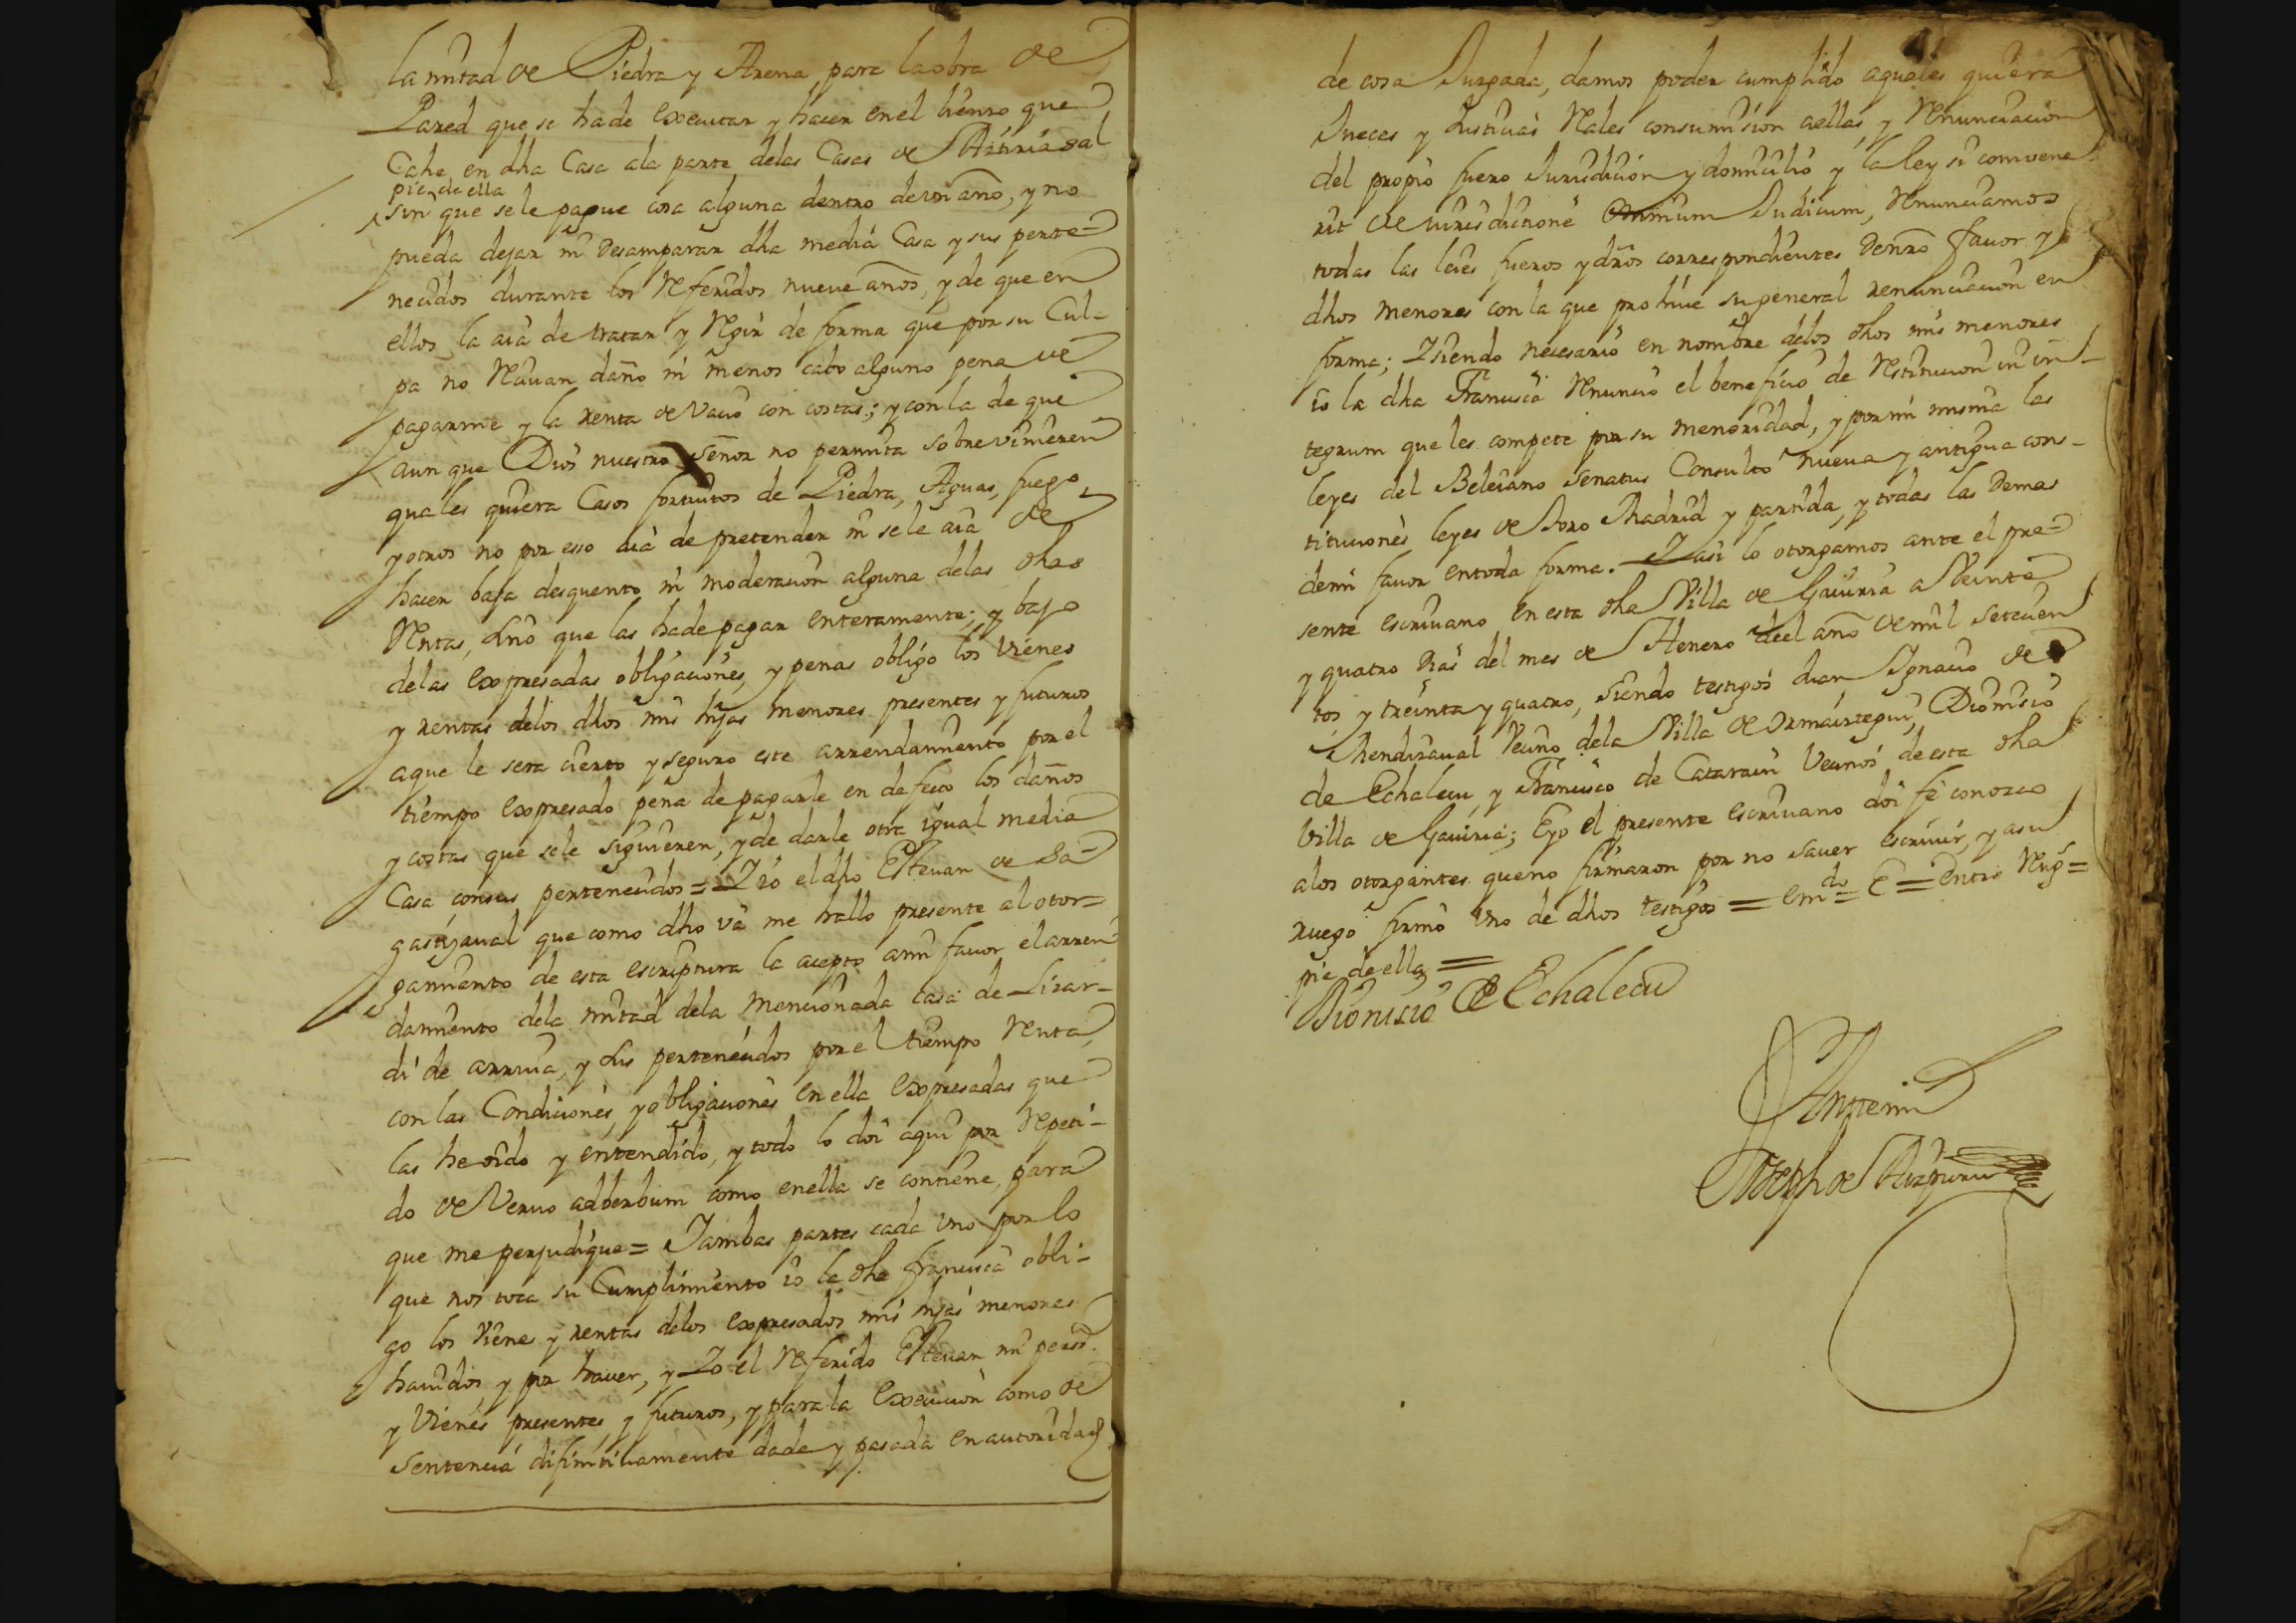 la mitad de Piedra y Arena para la obra de
Pared que se ha de executar y hacer en el lienzo que
Cahe en dha Casa ala parte delas Casas de al
pie de ella
sin que se le pague cosa alguna dentro de un año, y no
pueda dejar ni Desamparar dha media Casa y sus perte=
necidos durante los Referidos nueve años, y de que en
ellos la aia de tratar y Regir de forma que por su Cul-
pa no Reciuan daño ni menos cabo alguno pena de
pagarme y la renta de Vacio con costas; y con la de que
aun que Dios nuestro señor no permita sobrevinieren
quales quiera Casos fortuitos de Piedra, Aguas, fuego
y otros no por esso aia de pretender ni se le aia de
hacer baja desquento ni moderacion alguna delas dhas
Rentas, sino que las hade pagar enteramente; y bajo
delas expresadas obligaciones, y penas obligo los vienes
y rentas delos dhos mis hijos menores presentes y futuros
aque le sera cierto y seguro este arrendamiento por el
tiempo expresado pena de pagarle en defecto los daños
y costas que sele siguieren, y de darle otra igual media
Casa con sus pertenecidos = Y io el dho Estevan de Sa=
gastizaual que como dho va me hallo presente al otor=
gamiento de esta escriptura la acepto ami fauor el arren-
damiento dela mitad dela mencionada casa de Lizar-
di de arriua, y sus pertenecidos por el tiempo Renta,
con las Condiciones, y obligaciones en ella expresadas que
las he oido y entendido, y todo lo doi aqui por Repeti-
do de Veruo adberbum como enella se contiene, para
que me perjudique = Y ambas partes cada uno por lo
que nos toca su Cumplimiento io la dha francisca obli-
go los Vienes y rentas delos expresados mis hijos menores
hauidos y por hauer, y Yo el Referido Estevan mi perso.
y Vienes presentes y futuros, y para la Execucion como de
Sentencia difinitiuamente dada y pasada en autoridad
de cosa Juzgada, damos poder cumplido aquales quiera
Jueces y Justicias Reales con sumision aellas, y Renunciacion
del propio fuero Jurisdicion y domicilio y la ley si convene
rit de iurisdictione omnium Judicum, Renunciamos
todas las leies fueros y dros correspondientes de nro favor y
dhos menores con la que prohive su general renunciacion en
forma; Y siendo necesario en nombre delos dhos mis menores
io la dha Francisca Renuncio el beneficio de Restitucion in in-
tegrum que les compete por su menoridad, y por mi misma las
leyes del Beleiano senatus Consulto nueva y antigua cons-
tituciones leyes de Toro Madrid y partida, y todas las demas
demi fauor entoda forma. Y asi lo otorgamos ante el pre=
sente escriuano en esta dha Villa de Gauiria a Veinte
y quatro dias del mes de Henero deel año de mil setecien
tos y treinta y quatro, siendo testigos Juan Ignacio de
Mendizaual Vecino dela Villa de Ormaiztegui, Dionisio
de Echalecu, y Francisco de Catarain Vecinos de esta dha
Villa de Gauiria; Eyo el presente escriuano doi fe conozco
alos otorgantes que no firmaron por no sauer escriuir, y asu
ruego firmo uno de dhos testigos = em.do = E = Entre Reng=
pie de ella =
Dionisio de Echalecu
Antemi
Joseph de Aizpuru